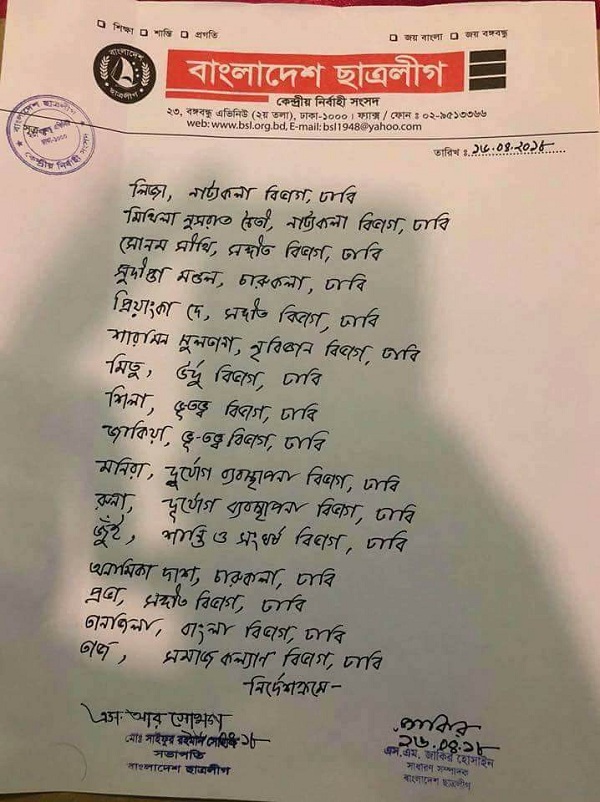 শিক্ষা শান্তি প্রগতি
জয় বাংলা জয় বঙ্গবন্ধু
বাংলাদেশ ছাত্রলীগ
বাংলাদেশ ছাত্রলীগ
কেন্দ্রীয় নির্বাহী সংসদ
২৩, বঙ্গবন্ধু এভিনিউ (২য় তলা), ঢাকা-১০০০। ফ্যাক্স / ফোন ঃ ০২-৯৫১৩৩৬৬
web: www.bsl.org.bd, E-mail: bsl1948@yahoo.com
বাংলাদেশ ছাত্রলীগ
কেন্দ্রীয় নির্বাহী সংসদ
তারিখ ঃ ১৬.০৪.২০১৮
লিজা, নাট্যকলা বিভাগ, ঢাবি
মিথিলা নুসরাত চৈতী, নাট্যকলা বিভাগ, ঢাবি
সোনম সীথি, সঙ্গীত বিভাগ, ঢাবি
সুদীপ্তা মন্ডল, চারুকলা, ঢাবি
প্রিয়াংকা দে, সঙ্গীত বিভাগ, ঢাবি
শারমিন সুলতানা, নৃবিজ্ঞান বিভাগ, ঢাবি
মিতু, উর্দু বিভাগ, ঢাবি
শিলা, ভূতত্ত্ব বিভাগ, ঢাবি
জাকিয়া, ভূ-তত্ত্ব বিভাগ, ঢাবি
মনিরা, দুর্যোগ ব্যবস্থাপনা বিভাগ, ঢাবি
রুনা, দুর্যোগ ব্যবস্থাপনা বিভাগ, ঢাবি
জুঁই, শান্তি ও সংঘর্ষ বিভাগ, ঢাবি
অনামিকা দাশ, চারুকলা, ঢাবি
প্রভা, সঙ্গীত বিভাগ, ঢাবি
তানজিলা, বাংলা বিভাগ, ঢাবি
তাজ, সমাজ কল্যাণ বিভাগ, ঢাবি
নির্দেশক্রমে-
এস. আর সোহাগ
মোঃ সাইফুর রহমান সোহাগ
সভাপতি
বাংলাদেশ ছাত্রলীগ
জাকির
১৬.০৪.১৮
এস.এম. জাকির হোসাইন
সাধারণ সম্পাদক
বাংলাদেশ ছাত্রলীগ